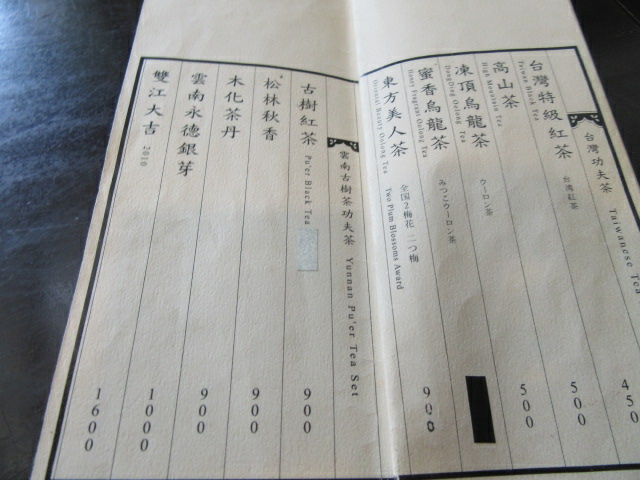 台灣功夫茶 Taiwanese Tea
台灣特級紅茶 台湾紅茶 450
Taiwan Black Tea
高山茶 500
High Mountain Tea
凍頂烏龍茶 ウーロン茶 500
DongDing Oolong Tea
蜜香烏龍茶 みつこウーロン茶
Honey Fragrant Oolong Tea
東方美人茶 全国2梅花 二つ梅 900
Oriental Beauty Oolong Tea Two Plum Blossoms Award
雲南古樹茶功夫茶 Yunnan Pu'er Tea Set
古樹紅茶 Pu'er Black Tea 900
松林秋香 900
木化茶丹 900
雲南永德銀芽 1000
雙江大吉 2010 1600